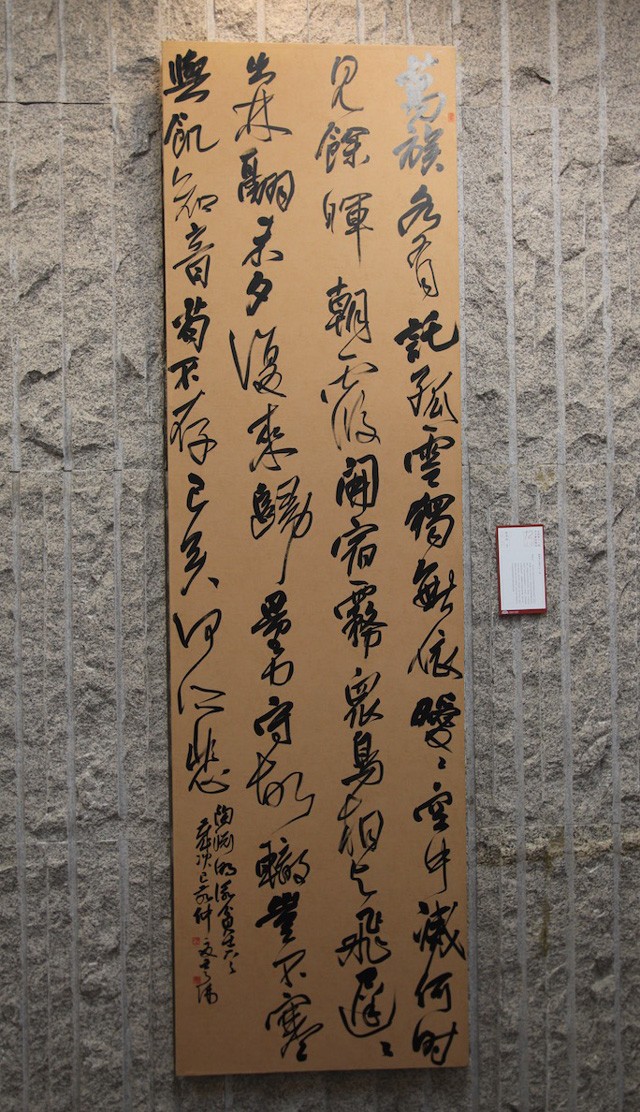 萬族各有託孤雲獨無依曖〻空中滅何时
見餘暉朝霞開宿霧衆鳥相与飛遲〻
出林翮未夕復來歸量力守故轍豈不寒
與飢知音苟不存已矣何所悲
陶淵明詠貧士
歲次己亥仲